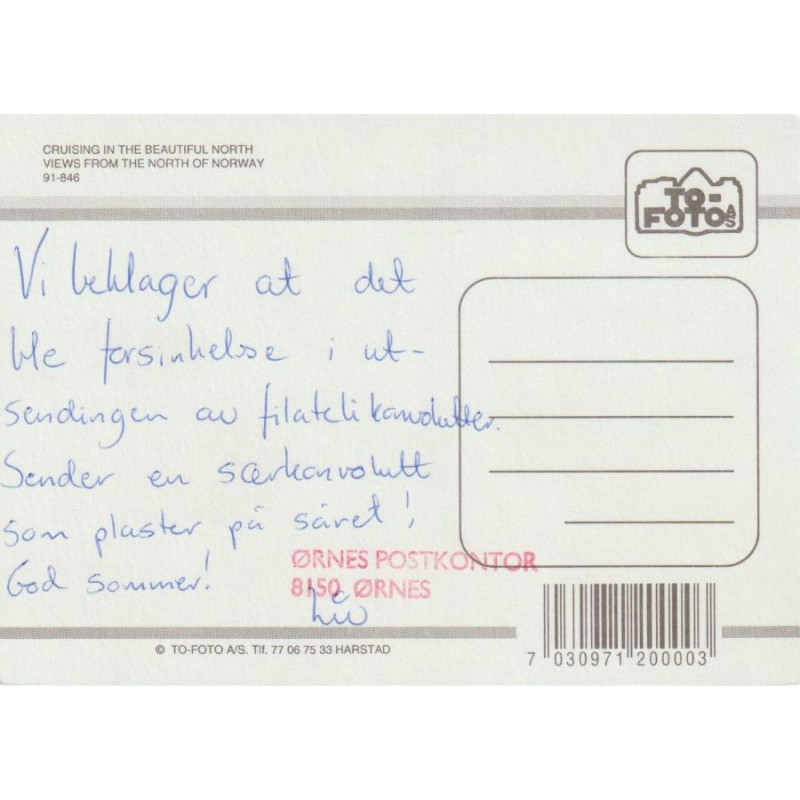 CRUISING IN THE BEAUTIFUL NORTH
VIEWS FROM THE NORTH OF NORWAY
91-846
TO-
FOTO AS
Vi beklager at det
ble forsinkelse i ut-
sendingen av filatelikonvolutter.
Sender en særkonvolutt
som plaster på såret!
God sommer!
ØRNES POSTKONTOR
8150 ØRNES
Liv
© TO-FOTO A/S. Tlf. 77 06 75 33 HARSTAD
7 030971 200003